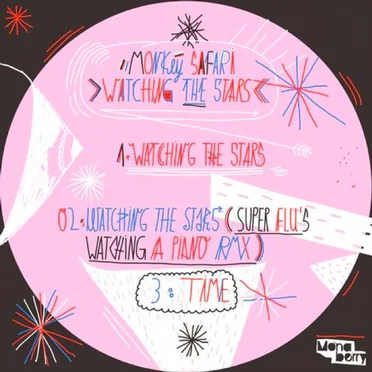 "MONKEY SAFARI
»WATCHING THE STARS«
1. WATCHING THE STARS
02. WATCHING THE STARS (SUPER FLU'S
WATCHING A PIANO RMX)
3: TIME
Mona
berry